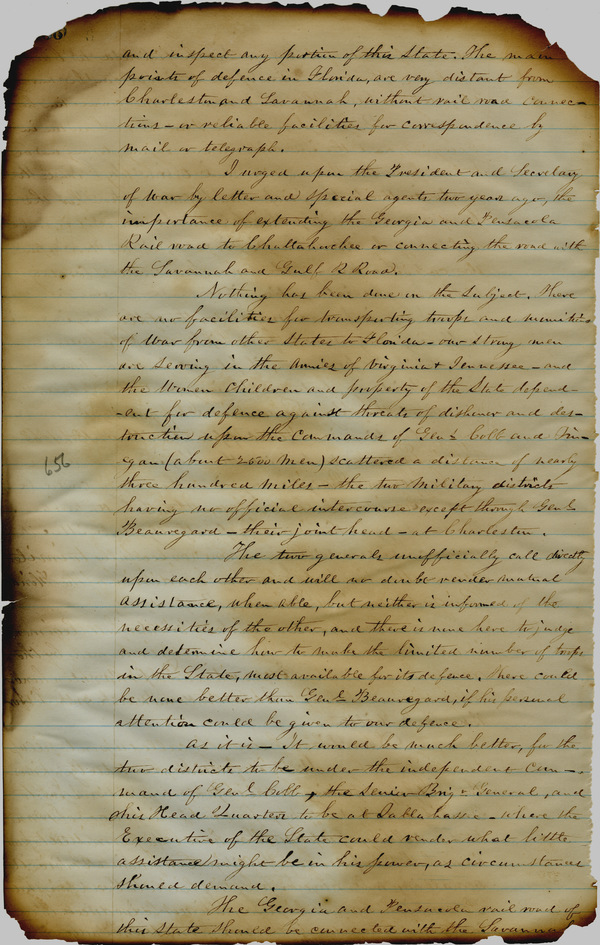 and inspect any portion of this State. The main
points of defence in Florida, are very distant from
Charleston and Savannah, without rail road connec-
tions - or reliable facilities for correspondence by
mail or telegraph.
I urged upon the President and Secretary
of War by letter and special agents two years ago, the
importance of extending the Georgia and Pensacola
Rail road to Chattahoochee or connecting the road with
the Savannah and Gulf R Road.
Nothing has been done on the subject. There
are no facilities for transporting troops and muniti-
of War from other States to Florida - our strong men
are serving in the Armies of Virginia & Tennessee - and
the Women Children and property of the State depend-
-ent for defence against threats of dishonor and des-
truction upon the commands of Genls Cobb and Fin-
egan (about 2500 men) scattered a distance of nearly
656
three hundred miles - the two Military districts
having no official intercourse except through Genl
Beauregard - their joint head - at Charleston.
The two generals unofficially call directly
upon each other and will no doubt render mutual
assistance, when able, but neither is informed of the
necessities of the other, and there is none here to judge
and determine how to make the limited number of troops
in the State, most available for its defence. There could
be none better than Genl Beauregard, if his personal
attention could be given to our defence.
As it is - It would be much better, for the
two districts to be under the independent com-
mand of Genl Cobb, the Senior Brigr General, and
his Head Quarters to be at Tallahassee - where the
Executive of the State could render what little
assistance might be in his power, as circumstances
should demand.
The Georgia and Pensacola rail road of
this State should be connected with the Savanna